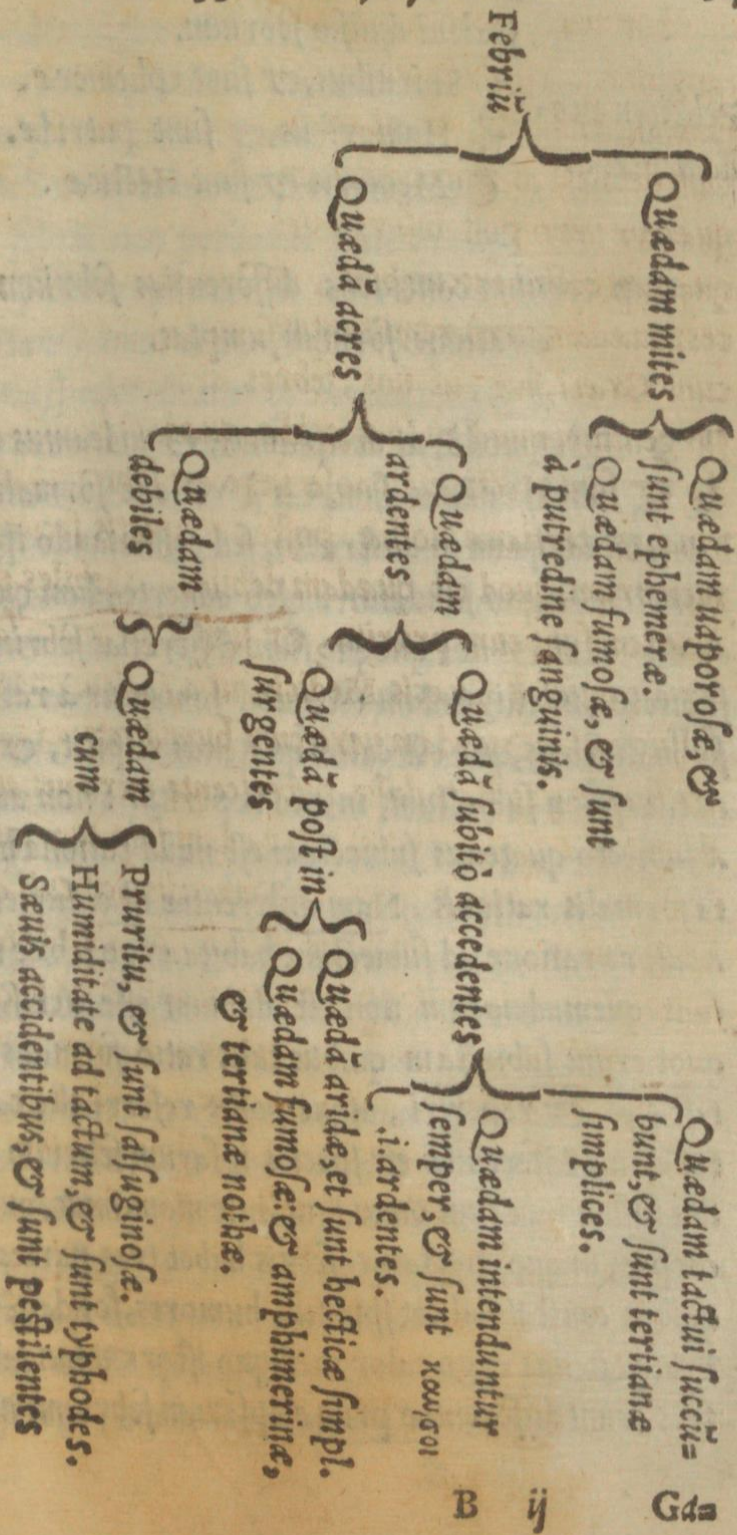 Febriū
Quædam mites
Quædam uaporosæ, &
sunt ephemeræ.
Quædam fumosæ, & sunt
à putredine sanguinis.
Quædā acres
Quædam
ardentes
Quædā subitò accedentes
Quædam tactui succū=
bunt, & sunt tertianæ
simplices.
Quædam intenduntur
semper, & sunt καυσοι
.i. ardentes.
Quædā post in
surgentes
Quædā aridæ, et sunt hecticæ simpl.
Quædam fumosæ: & amphimerinæ,
& tertianæ nothæ.
Quædam
debiles
Quædam
cum
Pruritu, & sunt salsuginosæ.
Humiditate ad tactum, & sunt typhodes.
Sæuis accidentibus, & sunt pestilentes
B ij Ga=